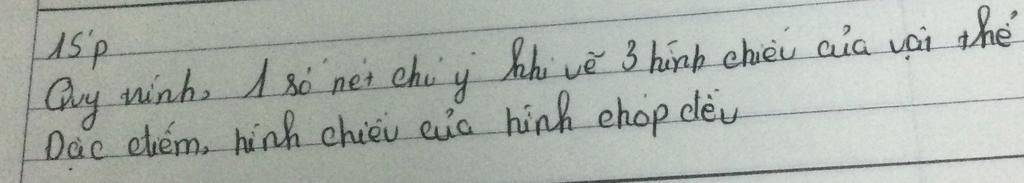 15'p
Quy ninh, 1 số nét chú ý khi vẽ 3 hình chiếu của vật thể
Đặc điểm, hình chiếu của hình chóp đều